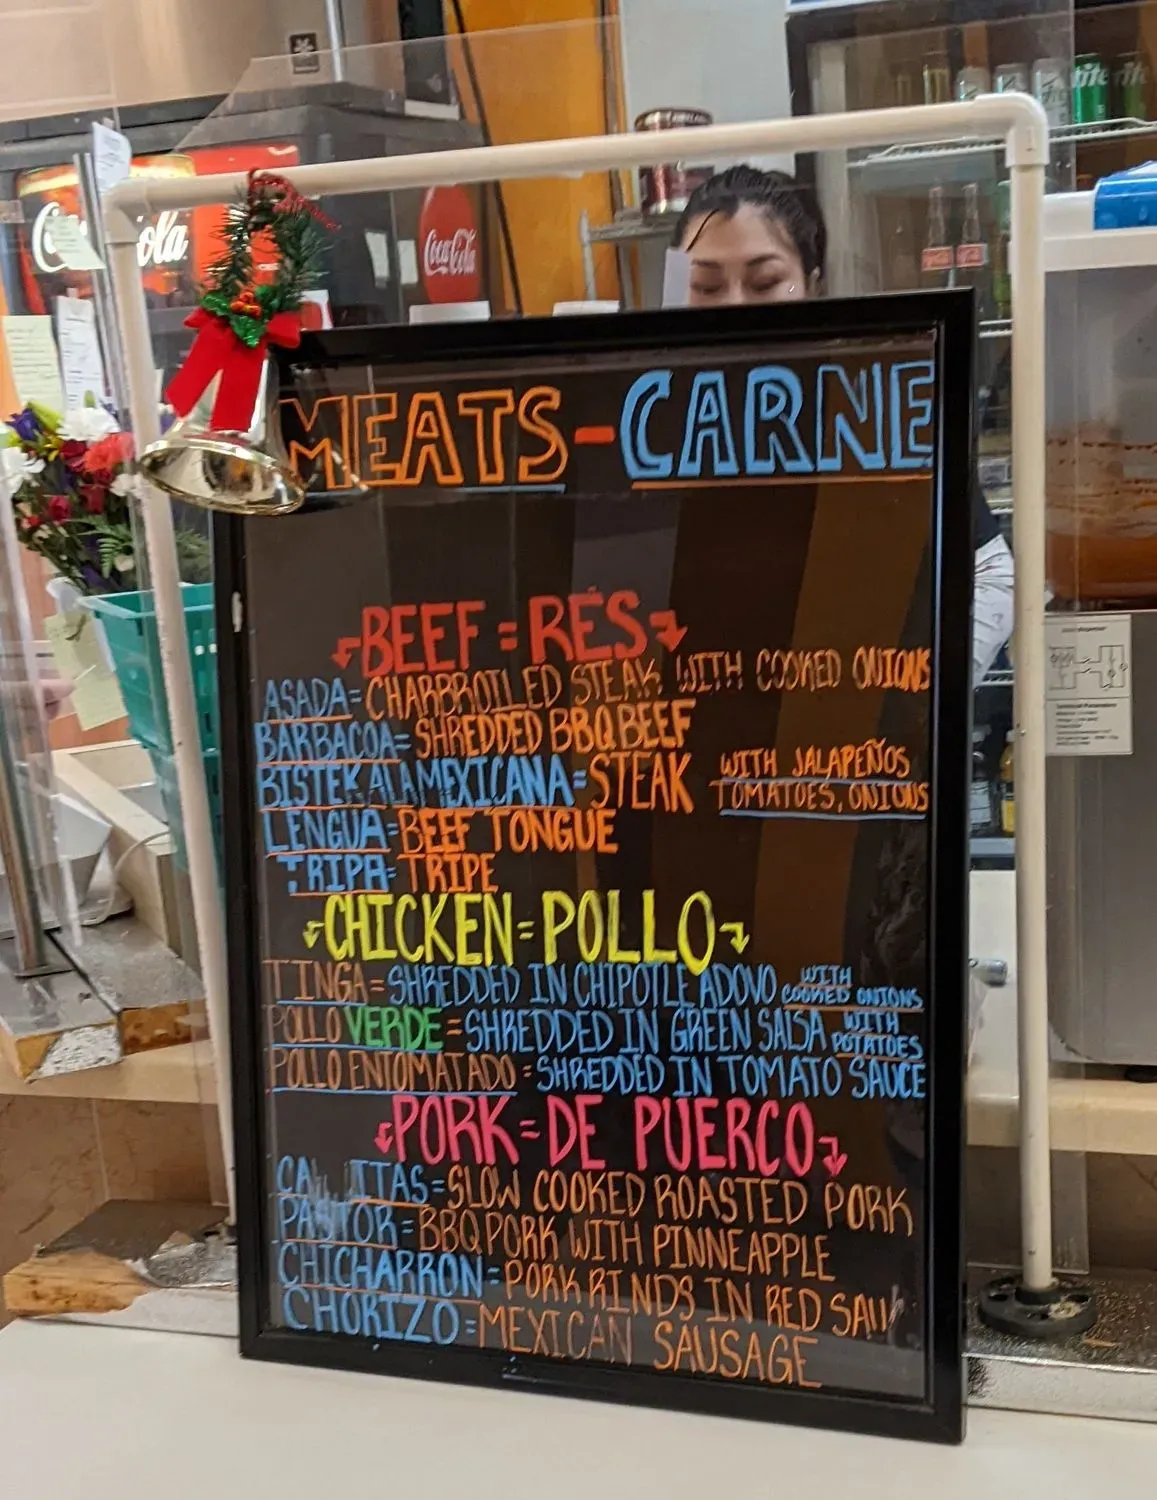 Coca-Cola
Coca-Cola
MEATS-CARNE
BEEF = RÉS
ASADA = CHARBROILED STEAK WITH COOKED ONIONS
BARBACOA = SHREDDED BBQ BEEF
BISTEK ALA MEXICANA = STEAK WITH JALAPEÑOS
TOMATOES, ONIONS
LENGUA = BEEF TONGUE
TRIPA = TRIPE
CHICKEN = POLLO
TINGA = SHREDDED IN CHIPOTLE ADOVO WITH
COOKED ONIONS
POLLO VERDE = SHREDDED IN GREEN SALSA WITH
POTATOES
POLLO ENTOMATADO = SHREDDED IN TOMATO SAUCE
PORK = DE PUERCO
= SLOW COOKED ROASTED PORK
PASTOR = BBQ PORK WITH PINNEAPPLE
CHICHARRON = PORK RINDS IN RED
CHORIZO = MEXICAN SAUSAGE